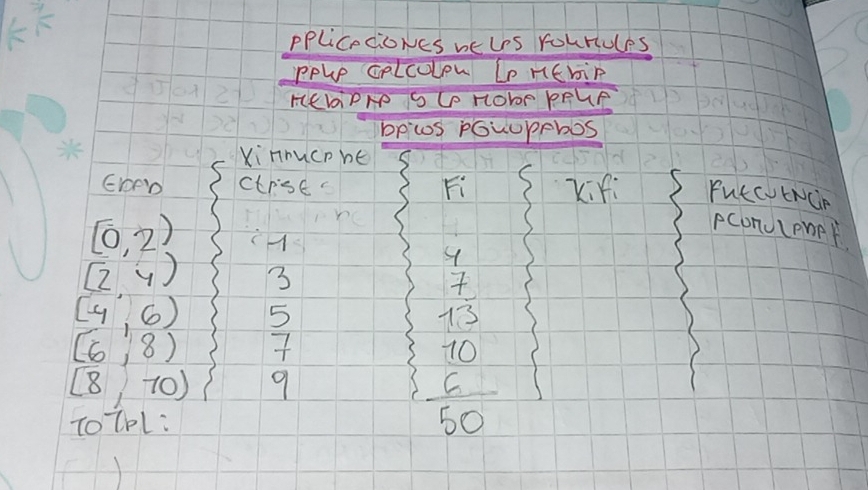 APLICACIONES DE LAS FORMULAS
PARA CALCULAR LA MEDIA
MEDIANA Y LA MODA PARA
DATOS AGRUPADOS
Edad Xi marca de clase Fi Xifi Frecuencia acomulada F
[0,2) 1 4
[2,4) 3 7
[4,6) 5 13
[6,8) 7 10
[8,10) 9 6
Total: 50